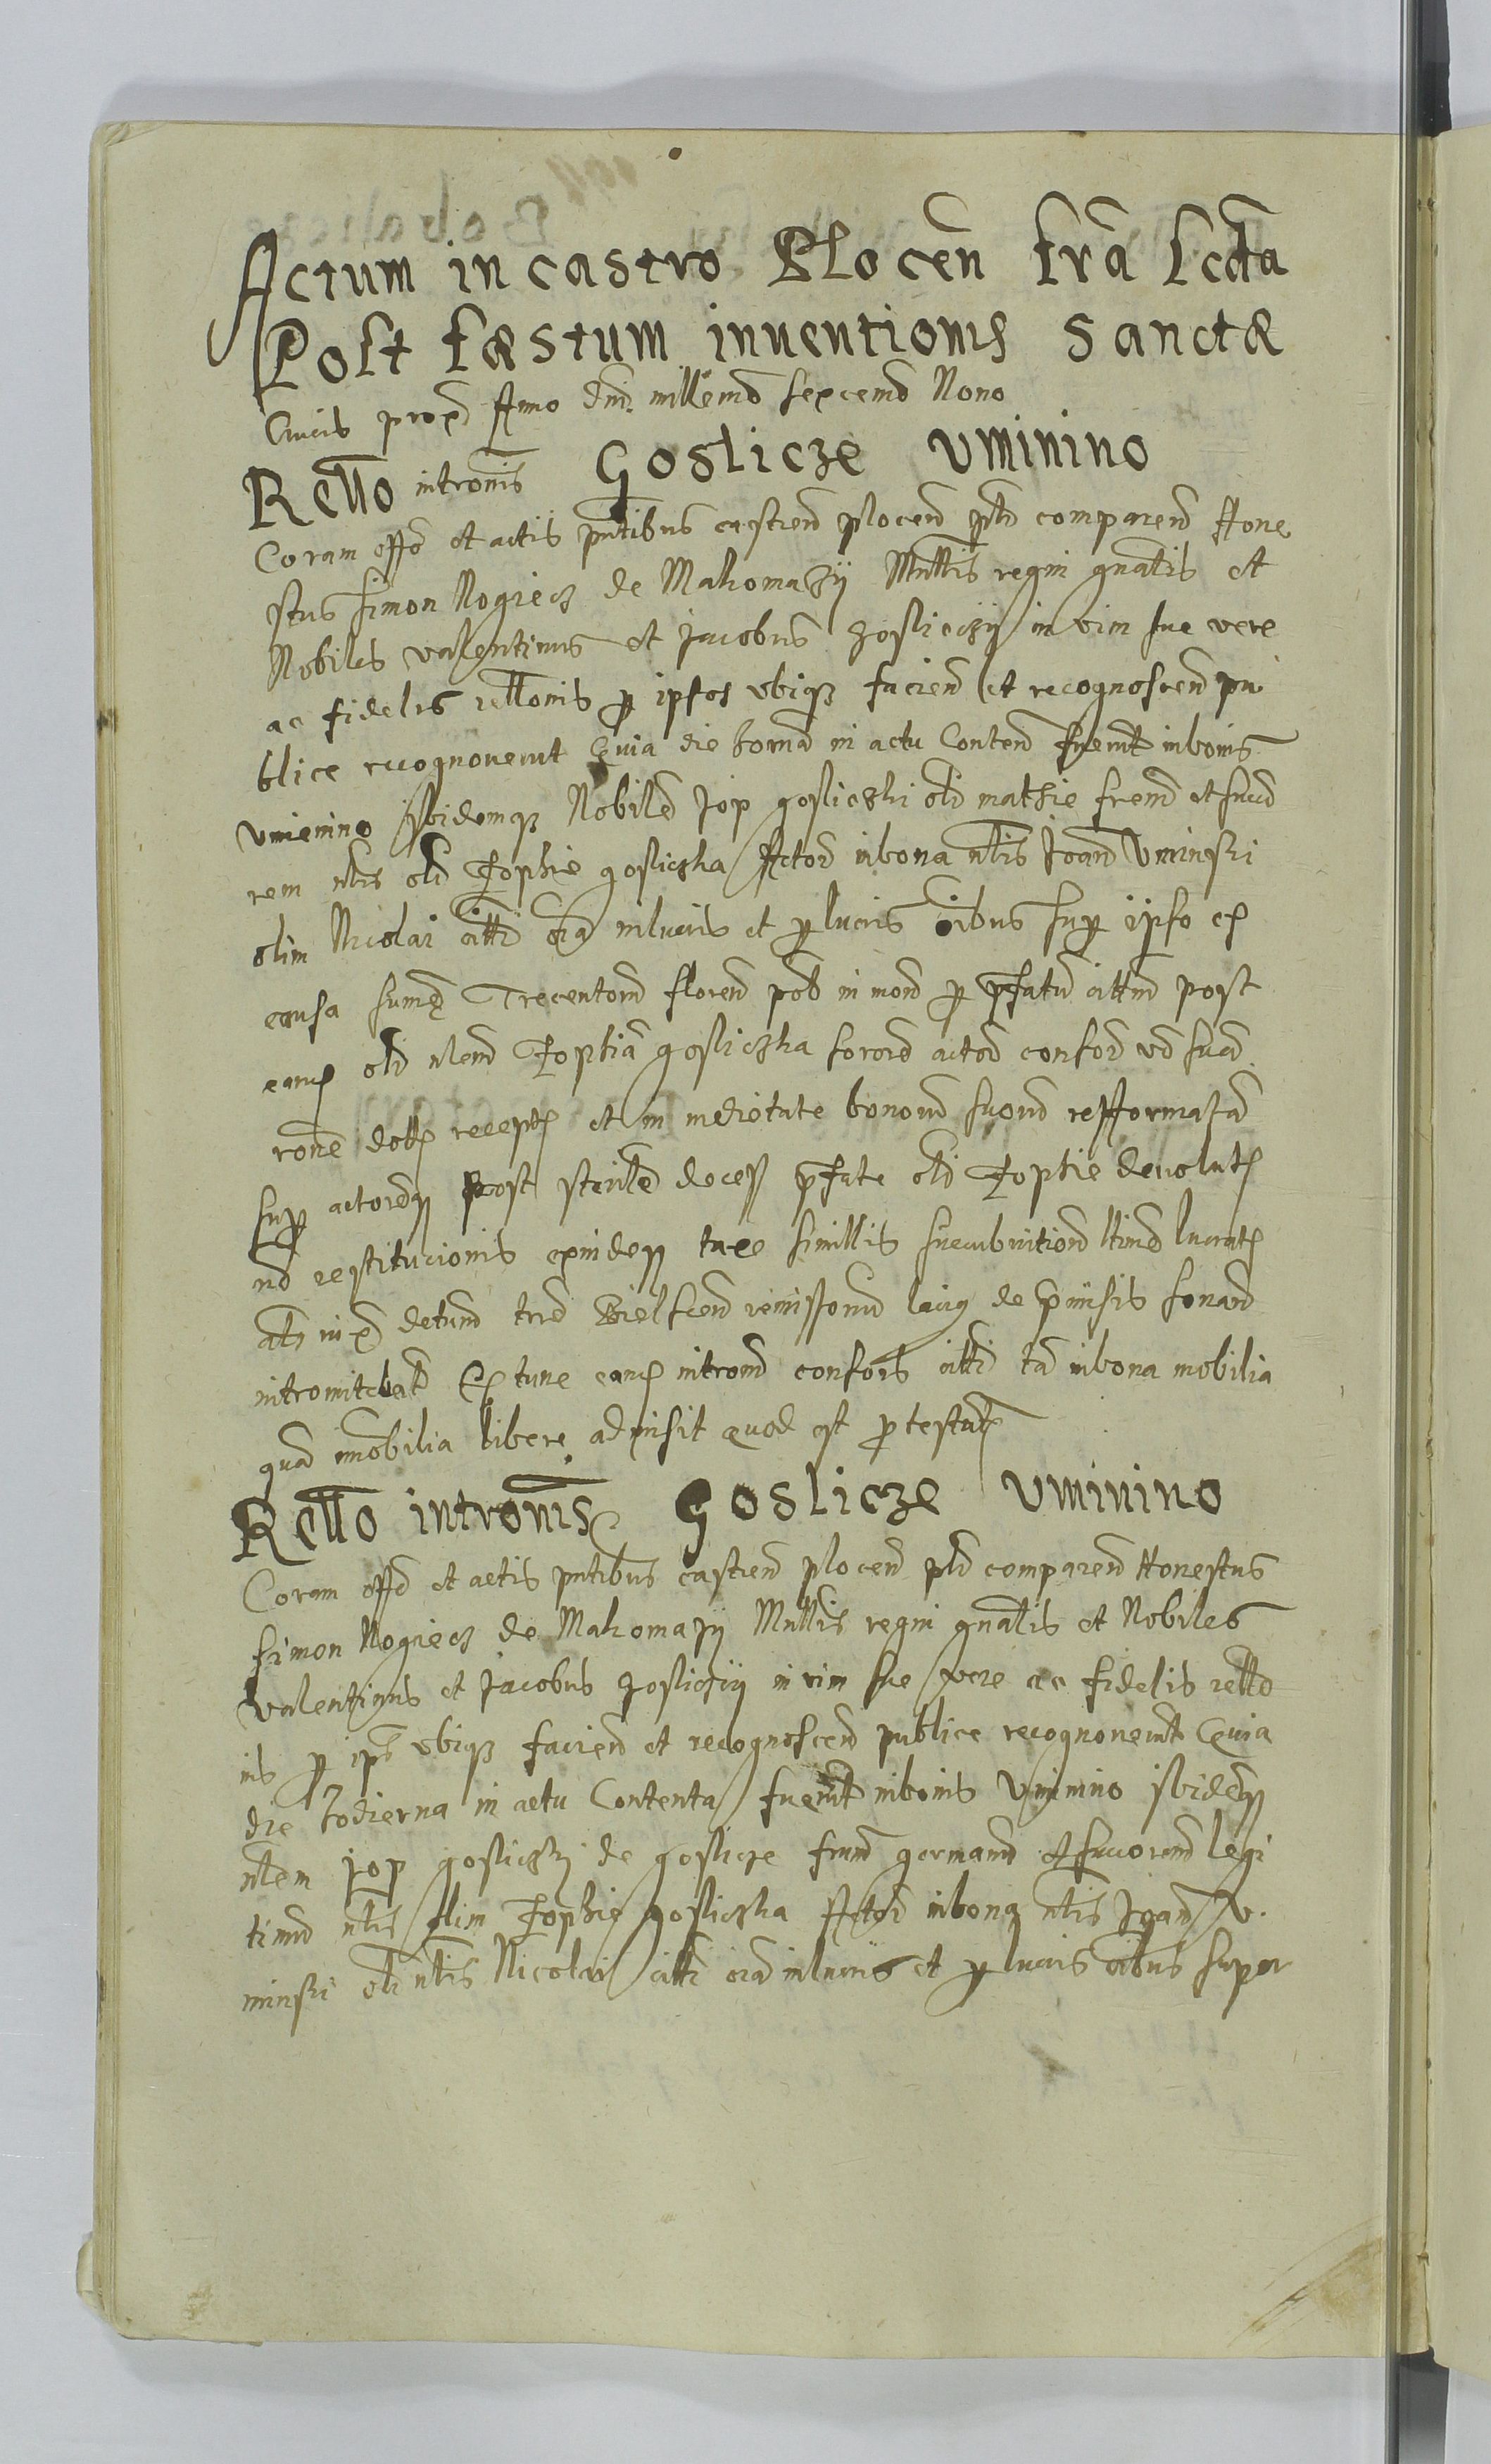 Actum in castro Plocen fria scda
Post fæstum inuentionis Sanctæ
Crucis proxo Anno Dni millemo sexcemo Nono
Rello intromis Goslicze Uminino
Coram offo et actis pntibus castren plocen plr comparen Hone
stus Simon Nogiecz de Makomazÿ Mnlis regni gnalis et
Nobiles valentinus et Jacobus Gosliczÿ in vim sue vere
ac fidelis rellonis p ipsos vbiq faciend et recognoscend pu
blice recognouerunt Quia die hoerna in actu Contenta fuerunt in bonis
Uminino ibidemq Nobilem Jop gosliczki oli mathie frem et succ
rem nlis oli Zophie gosliczka Actorem in bona nlis Joan Uminski
olim Nicolai citti oia in lucris et p lucris oibus sup ipso ex
causa sume Trecentorum floren pol in mon p pfatum cittm post
eand oli nlem Zophia gosliczka sororem actor consor ud suam
rone dotis recept et in medietate bonorum suorum reformata
sup actoremq post sterile decess pfate oli Zophie deuolut
nd restitucionis exindeq taxe simillis succubuitionem ltime lucrat
als in x detum trm Bielscen remissorum lacius de pmisis sonand
intromitebat Ex tunc eand introm consors citti ta in bona mobilia
qua imobilia libere admisit quod est protestat
Rello intromis Goslicze Uminino
Coram offo et actis pntibus castren plocen plr comparen Honestus
Simon Nogiecz de Makomazÿ Mnlis regni gnalis et Nobiles
valentinus et Jacobus Gosliczÿ in vim sue vere ac fidelis rello
nis p ipos vbiq faciend et recognoscend publice recognouerunt Quia
die hodierna in actu Contenta fuerunt in bonis Uminino ibidemq
nlem Jop goslickj de goslicze frem germanum et succorem legi
timum nlis olim Zophie goslicka Actor in bona nlis Joan U
minski oli nlis Nicolai citti oia in lucris et p lucris oibus super